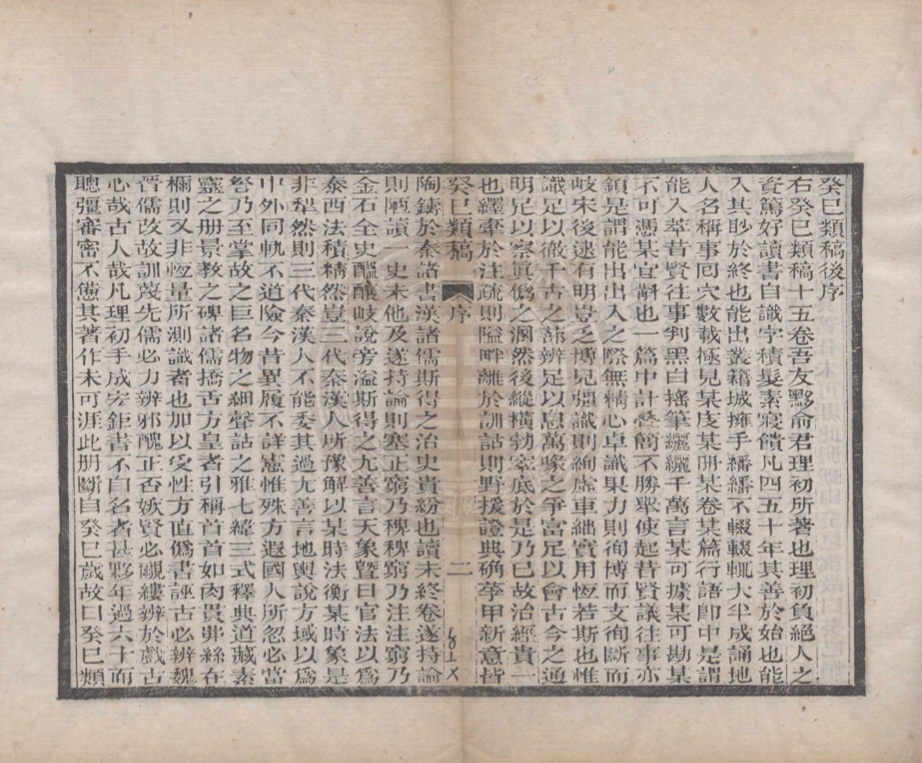 癸巳類稿後序
右癸巳類稿十五卷吾友黟俞君理初所著也理初負絕人之
資篤好讀書自識字積髮素寢饋凡四五十年其善於始也能
入其眇於終也能出叢籍城擁手繙繙不輟輟輒大半成誦地
人名稱事回穴數載極見某庋某冊某卷某篇行語卽中是謂
能入萃昔賢往事判黑白搖筆纚纚千萬言某可據某可勘某
不可憑某宜辭也一篇中計疊簡不勝舉使起昔賢議往事亦
鎖是謂能出出入之際無精心卓識果力則徇博而支徇斷而
岐宋後逮有明豈乏博見彊識則絢虛車絀實用恆若斯也惟
識足以徹千古之蔀辨足以息萬喙之爭富足以會古今之通
明足以察眞僞之溷然後縱橫勃窣底於是乃已故治經貴一
也纆牽於注疏則隘畔離於訓詁則野援證典确莩甲新意皆
癸巳類稿 序 二
陶鑄於秦諸書漢諸儒斯得之治史貴紛也讀未終卷遂持論
則陋讀一史未他及遂持論則塞正窮乃稗稗窮乃注注窮乃
金石全史醞釀岐說旁溢斯得之尤善言天象曁日官法以爲
泰西法積精然豈三代秦漢人所豫解以某時法衡某時象是
非犁然則三代秦漢人不能委其過尤善言地輿說方域以爲
中外同軌不道險今昔異履不詳憲惟殊方遐國人所忽必當
咎乃至掌故之巨名物之細聲詁之雅七緯三式釋典道藏素
靈之册景教之碑諸儒撟舌方皇者引稱首首如肉貫弗絲在
檷則又非恆量所測識者也加以受性方直僞書誣古必辨魏
晉儒改故訓蔑先儒必力辨邪醜正否嫉賢必覼縷辨於戲古
心哉古人哉凡理初手成宏鉅書不自名者甚夥年過六十而
聰彊審密不憊其著作未可涯此册斷自癸巳歲故曰癸巳類